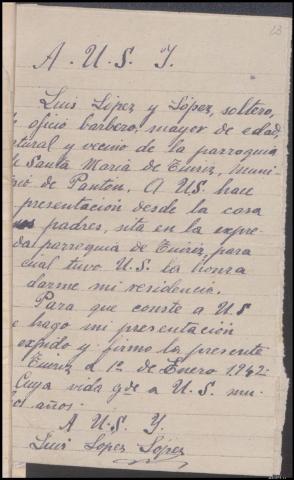 13
A. U. S. Y.
Luis López y López, soltero,
oficio barbero, mayor de edad,
tural y vecino de la parroquia
Santa María de Tuiriz, muni
pio de Pantón. A US. hace
presentación desde la casa
padres, sita en la expre
da parroquia de Tuiriz, para
cual tuvo U.S. la honra
darme mi residencia.
Para que conste a U.S
hago mi presentación
expido y firmo la presente
Tuiriz a 1º de Enero 1942-
Cuya vida gde a U.S. mu
años.
A U.S. Y.
Luis López López